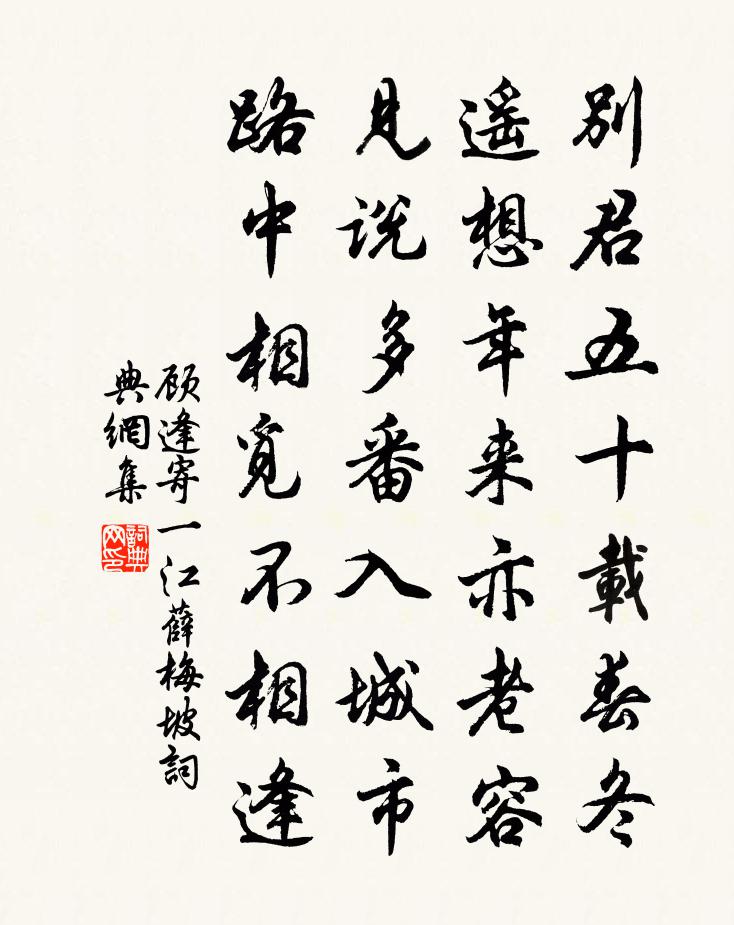 别君五十載春冬
遥想年来亦老容
見説多番入城市
路中相覓不相逢
顾逢寄一江薛梅坡詞
典網集
詞典网印